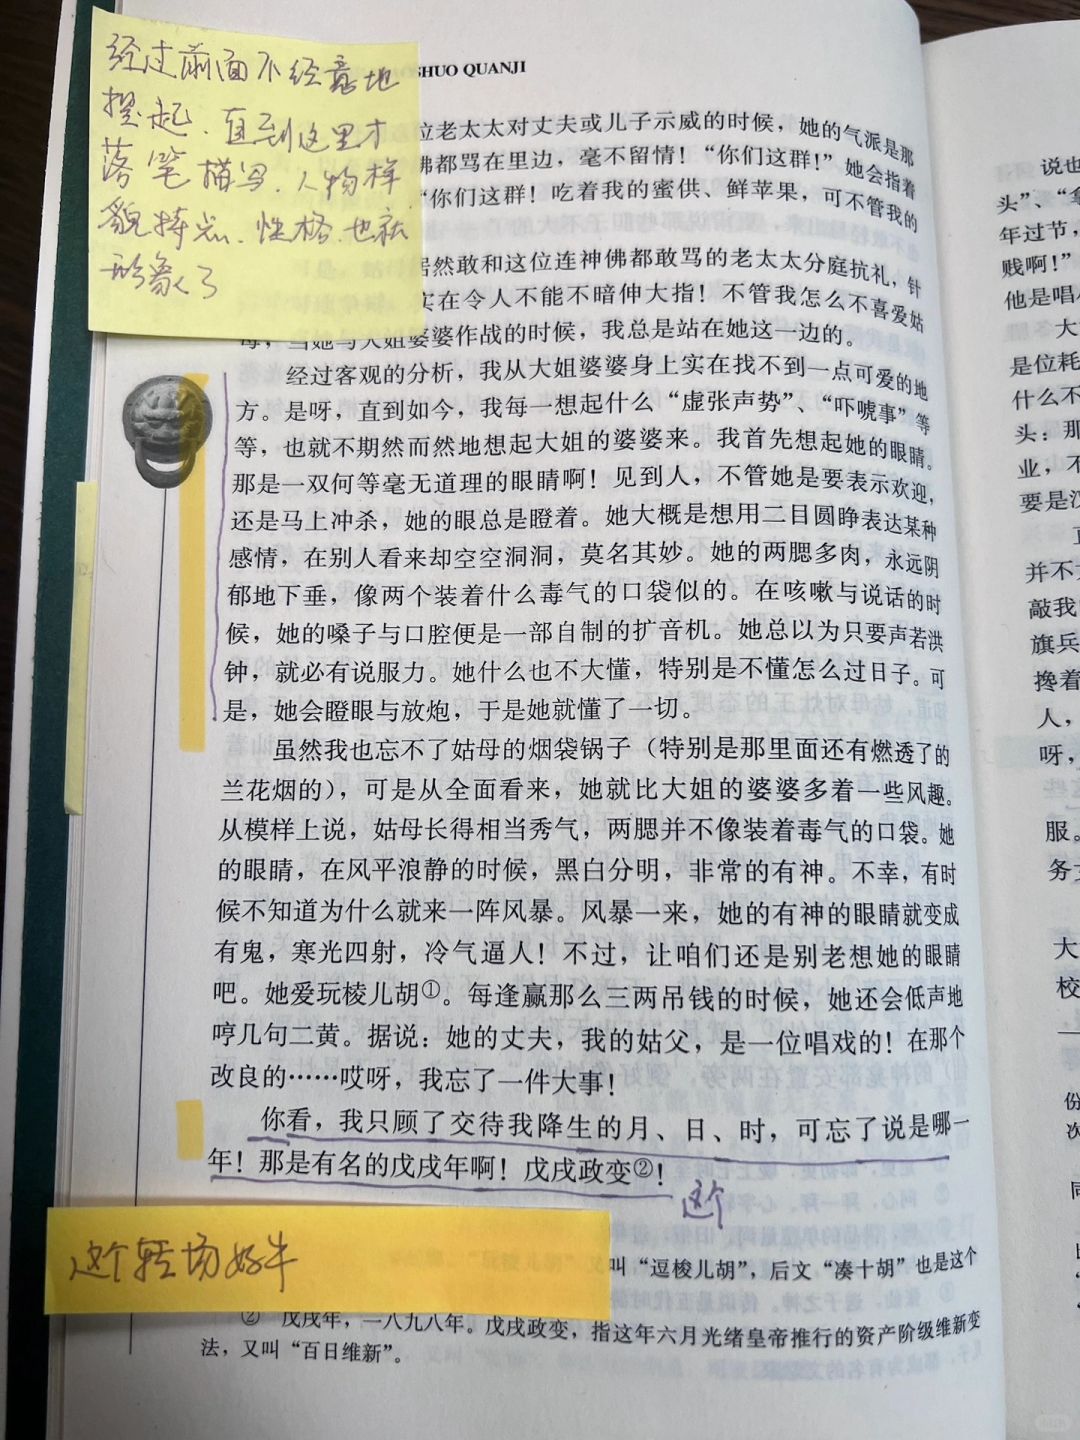 经过前面不经意地
提起、直到这里才
落笔描写、人物样
貌特点、性格也就
形象了
SHUO QUANJI
位老太太对丈夫或儿子示威的时候，她的气派是那
佛都骂在里边，毫不留情！“你们这群！”她会指着
“你们这群！吃着我的蜜供、鲜苹果，可不管我的
居然敢和这位连神佛都敢骂的老太太分庭抗礼，针
实在令人不能不暗伸大指！不管我怎么不喜爱姑
母，当她与大姐婆婆作战的时候，我总是站在她这一边的。
经过客观的分析，我从大姐婆婆身上实在找不到一点可爱的地
方。是呀，直到如今，我每一想起什么“虚张声势”、“吓唬事”等
等，也就不期然而然地想起大姐的婆婆来。我首先想起她的眼睛。
那是一双何等毫无道理的眼睛啊！见到人，不管她是要表示欢迎，
还是马上冲杀，她的眼总是瞪着。她大概是想用二目圆睁表达某种
感情，在别人看来却空空洞洞，莫名其妙。她的两腮多肉，永远阴
郁地下垂，像两个装着什么毒气的口袋似的。在咳嗽与说话的时
候，她的嗓子与口腔便是一部自制的扩音机。她总以为只要声若洪
钟，就必有说服力。她什么也不大懂，特别是不懂怎么过日子。可
是，她会瞪眼与放炮，于是她就懂了一切。
虽然我也忘不了姑母的烟袋锅子（特别是那里面还有燃透了的
兰花烟的），可是从全面看来，她就比大姐的婆婆多着一些风趣。
从模样上说，姑母长得相当秀气，两腮并不像装着毒气的口袋。她
的眼睛，在风平浪静的时候，黑白分明，非常的有神。不幸，有时
候不知道为什么就来一阵风暴。风暴一来，她的有神的眼睛就变成
有鬼，寒光四射，冷气逼人！不过，让咱们还是别老想她的眼睛
吧。她爱玩梭儿胡①。每逢赢那么三两吊钱的时候，她还会低声地
哼几句二黄。据说：她的丈夫，我的姑父，是一位唱戏的！在那个
改良的……哎呀，我忘了一件大事！
你看，我只顾了交待我降生的月、日、时，可忘了说是哪一
年！那是有名的戊戌年啊！戊戌政变②！
这个
这个转场好牛
叫“逗梭儿胡”，后文“凑十胡”也是这个
② 戊戌年，一八九八年。戊戌政变，指这年六月光绪皇帝推行的资产阶级维新变
法，又叫“百日维新”。
说也
头”、“拿
年过节，
贱啊！”
他是唱
大
是位耗
什么不
头：那
业，不
要是汉
并不
敲我
旗兵
搀着
人，
呀，
服。
务
大
校
份
次
同